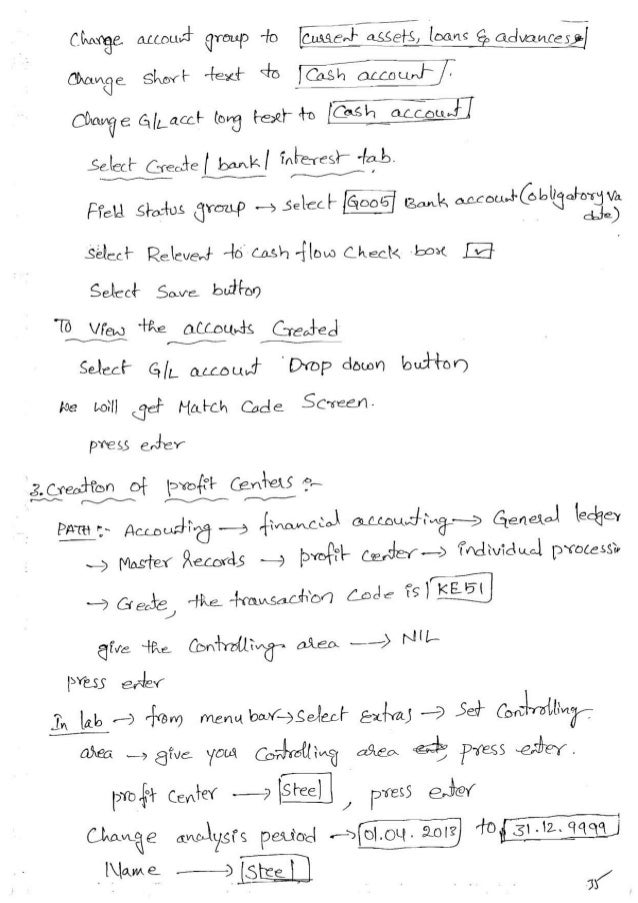 Change account group to Current assets, loans & advances
Change short text to Cash account.
Change G/L acct long text to Cash account
Select Create / bank / interest tab.
Field status group → select G005 Bank account (obligatory va
date)
Select Relevent to cash flow check box ✓
Select Save button
To View the accounts Created
Select G/L account Drop down button
We will get Match Code Screen.
press enter
3. Creation of profit Centers :-
PATH :- Accounting → financial accounting → General ledger
→ Master Records → profit center → individual processin
→ Create, the transaction code is KE51
give the Controlling area → NIL
press enter
In lab → from menu bar → Select Extras → Set Controlling
area → give your Controlling area press enter.
profit Center → Steel, press enter
Change analysis period → 01.04.2013 to 31.12.9999
Name → Steel
35